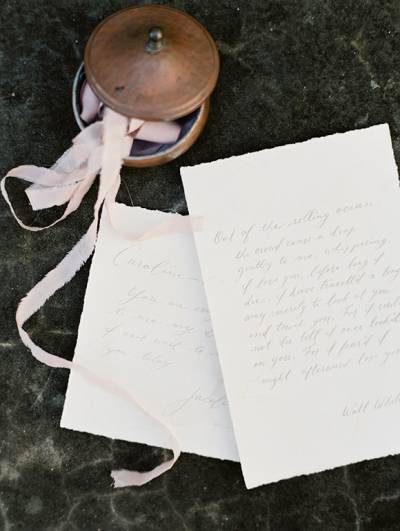 Out of the rolling ocean
the crowd came a drop
gently to me, whispering,
I love you, before long I
die: I have travelled a long
way merely to look at you
and touch you, For I could
not die till I once look'd
on you, For I fear'd I
might afterward lose you
Walt
Caroline
You are
to me my
I and wait to
you today
Jacob